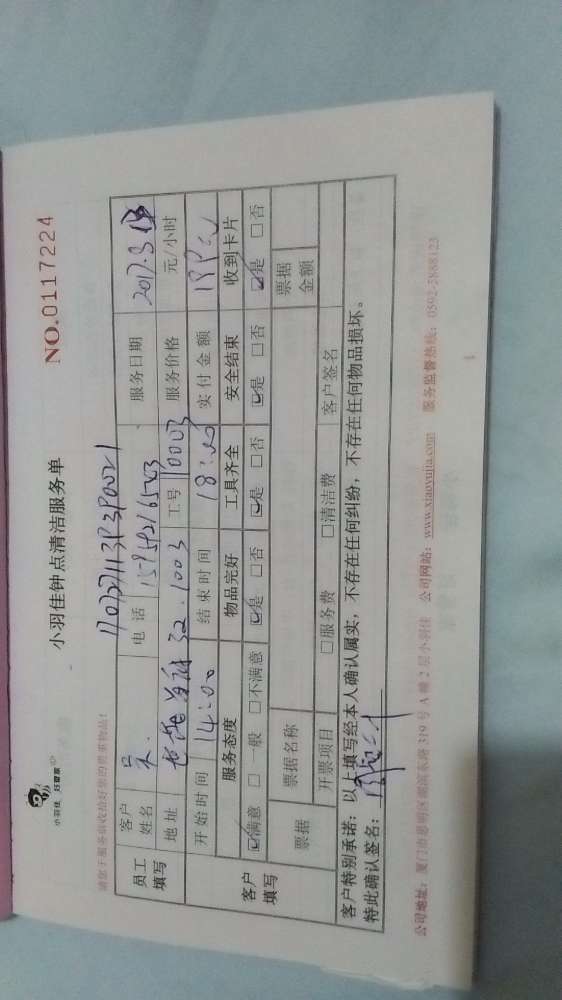 小羽佳 好管家
小羽佳钟点清洁服务单
NO.0117224
请您于服务前收拾好您的贵重物品!
员工填写
客户姓名 吴 电话 服务日期 2017.3
地址 32.1003 工号 0003 服务价格 元/小时
开始时间 14:00 结束时间 18:00 实付金额
客户填写
服务态度 物品完好 工具齐全 安全结束 收到卡片
☑满意 □一般 □不满意 ☑是 □否 ☑是 □否 ☑是 □否 ☑是 □否
票据 票据名称 票据金额
开票项目 □服务费 □清洁费 客户签名
客户特别承诺:以上填写经本人确认属实,不存在任何纠纷,不存在任何物品损坏。
特此确认签名:
公司地址:厦门市思明区湖滨东路319号A幢2层小羽佳 公司网站:www.xiaoyujia.com 服务监督热线:0592-5888123